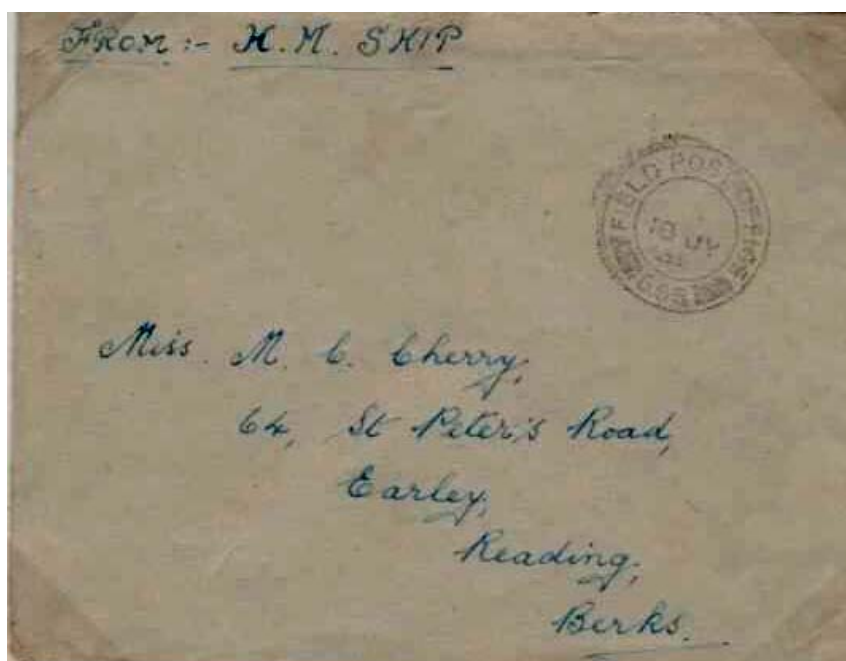 FROM :- H. M. SHIP
FIELD POST OFFICE
18 JY
Miss. M. C. Cherry,
64, St Peter's Road,
Earley,
Reading,
Berks.